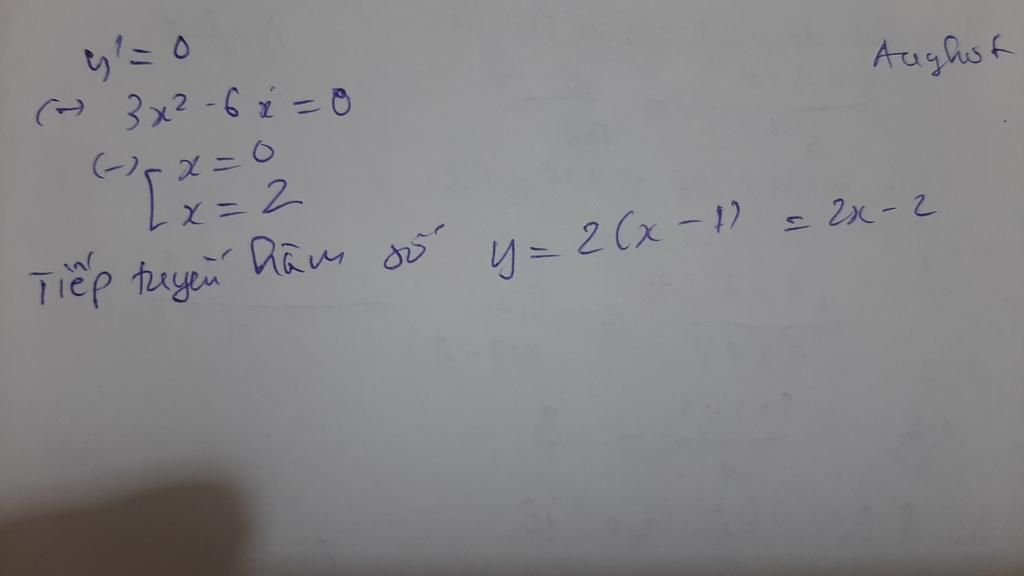 y' = 0
Aughost
(→ 3x² - 6x = 0
(→ [ x = 0
x = 2
Tiếp tuyến hàm số y = 2(x - 1) = 2x - 2